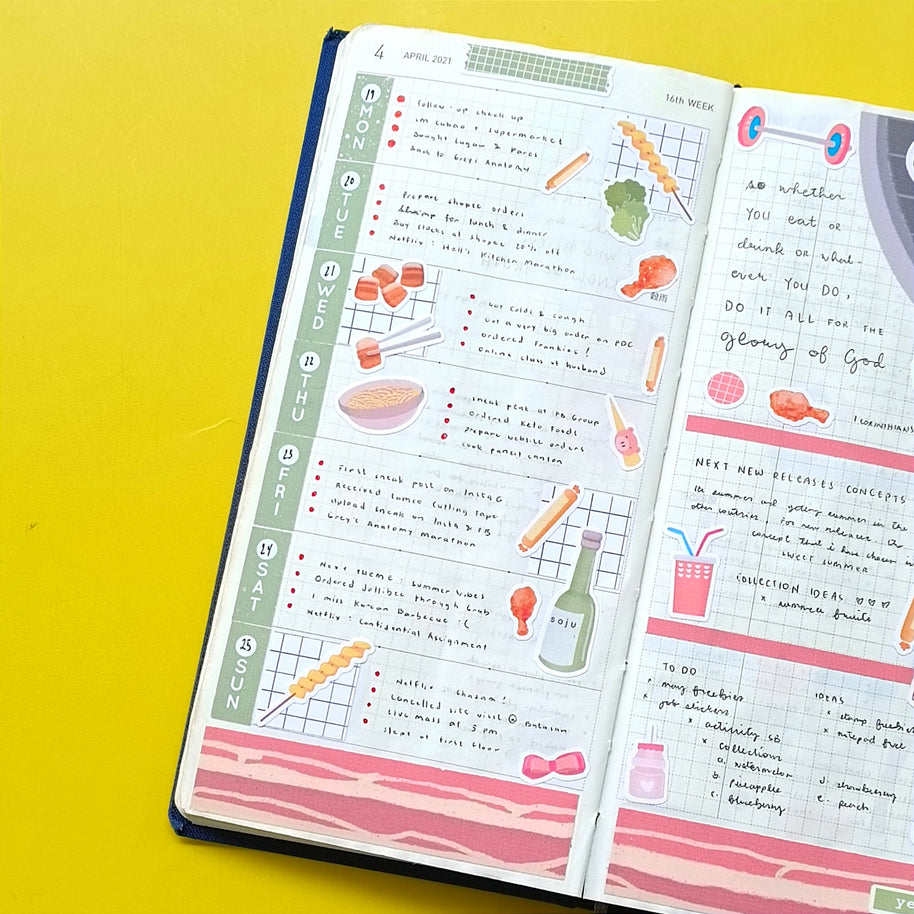 4 APRIL 2021
16th WEEK
19
MON
Follow-up check up
SM Cubao + Supermarket
Bought Sugar & Pares
Back to Grey's Anatomy
20
TUE
Prepare shopee orders
Shrimp for lunch & dinner
Buy clocks at shopee 20% off
Netflix : Hell's Kitchen Marathon
穀雨
21
WED
Got colds & cough
Got a very big order on PDC
Ordered Frankies !
Online class of husband
22
THU
sneak peat at FB Group
Ordered Keto Foods
Prepare website orders
Cook pancit canton
23
FRI
First sneak post on Insta G
Received Tumio Cutting Tape
Upload sneak on Insta & FB
Grey's Anatomy Marathon
24
SAT
Next theme : Summer Vibes
Ordered Jollibee through Grab
I miss Korean Barbecue :(
Netflix : Confidential Assignment
SOJU
25
SUN
Netflix : Chasam !
Cancelled site visit @ Batasan
Live mass at 3 pm
Slept at first floor
so whether
YOU eat OR
drink or what-
ever YOU DO,
DO IT ALL FOR THE
glory of God
1 CORINTHIANS
NEXT NEW RELEASES CONCEPTS
Its summer and getting summer in the
other countries. For new releases, the
concept that i have chosen is
SWEET SUMMER
COLLECTION IDEAS ♡♡♡
x summer fruits
TO DO
x may freebies
x job stickers
x activity SB
x collections
a. watermelon
b. pineapple
c. blueberry
d. strawberry
e. peach
IDEAS
x stamp freebies
x notepad free
ye